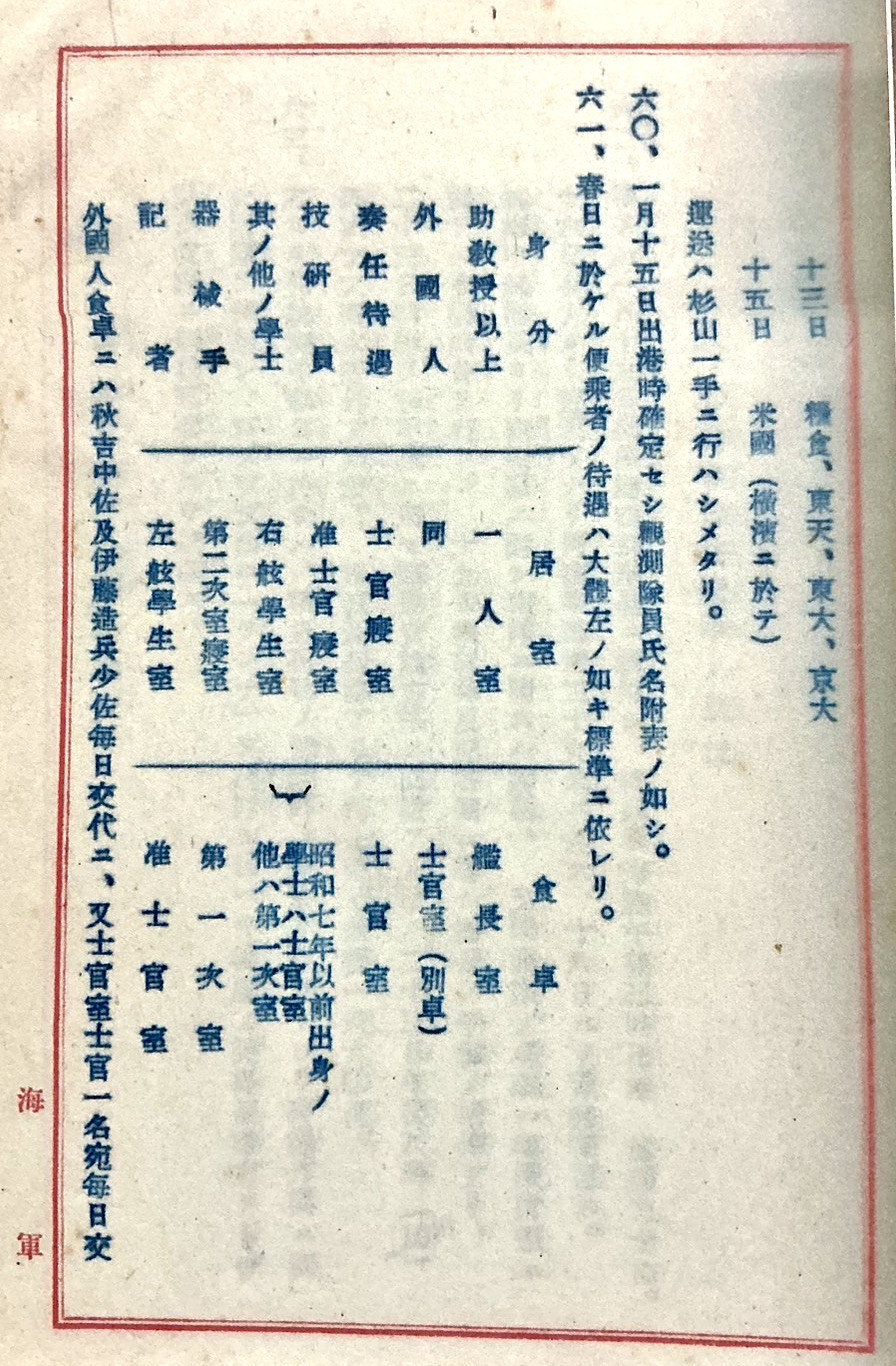 十三日　糧食、東天、東大、京大
十五日　米國（横濱ニ於テ）
運送ハ杉山一手ニ行ハシメタリ。
六〇、一月十五日出港時確定セシ觀測隊員氏名附表ノ如シ。
六一、春日ニ於ケル便乘者ノ待遇ハ大體左ノ如キ標準ニ依レリ。
身分　居室　食卓
助敎授以上　一人室　艦長室
外國人　同　士官室（別卓）
奏任待遇　士官寢室　士官室
技硏員　准士官寢室　昭和七年以前出身ノ
學士ハ士官室
其ノ他ノ學士　右舷學生室　他ハ第一次室
器械手　第二次室寢室　第一次室
記者　左舷學生室　准士官室
外國人食卓ニハ秋吉中佐及伊藤造兵少佐每日交代ニ、又士官室士官一名宛每日交
海軍